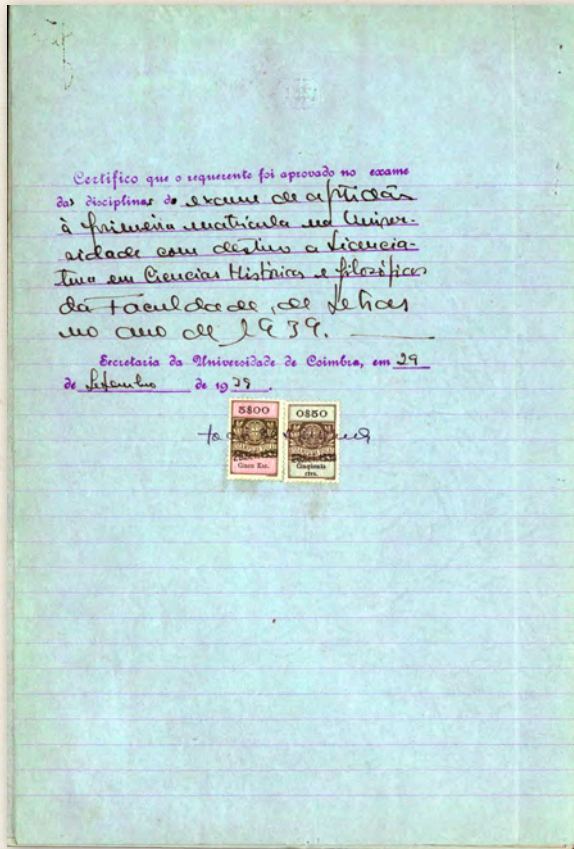 Certifico que o requerente foi aprovado no exame
das disciplinas de exame de aptidão
à primeira matrícula na Univer-
sidade com destino a Licencia-
tura em Ciencias Históricas e filosóficas
da Faculdade, de Letras
no ano de 1939.
Secretaria da Universidade de Coimbra, em 29
de Setembro de 1939.
5$00 0$50
Cinco Esc. Cinqüenta
ctvs.